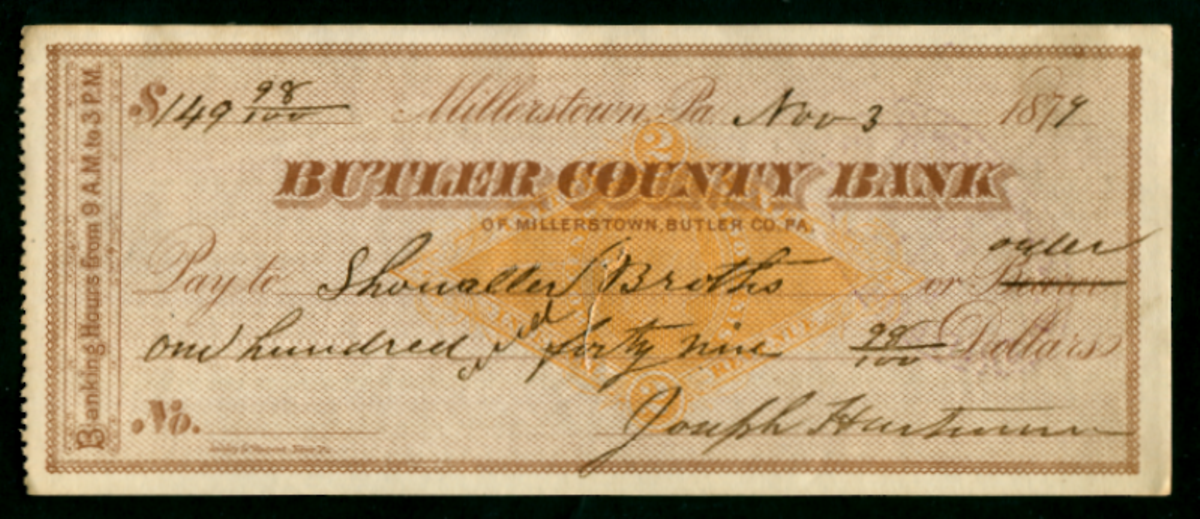 Banking Hours from 9 A.M. to 3 P.M.
$149 98/100 Millerstown, Pa. Nov 3 1879
2
BUTLER COUNTY BANK
OF MILLERSTOWN, BUTLER CO. PA.
order
Pay to Showalter Broths or Bearer
one hundred & forty nine 98/100 Dollars
2
No.
Joseph Hartman